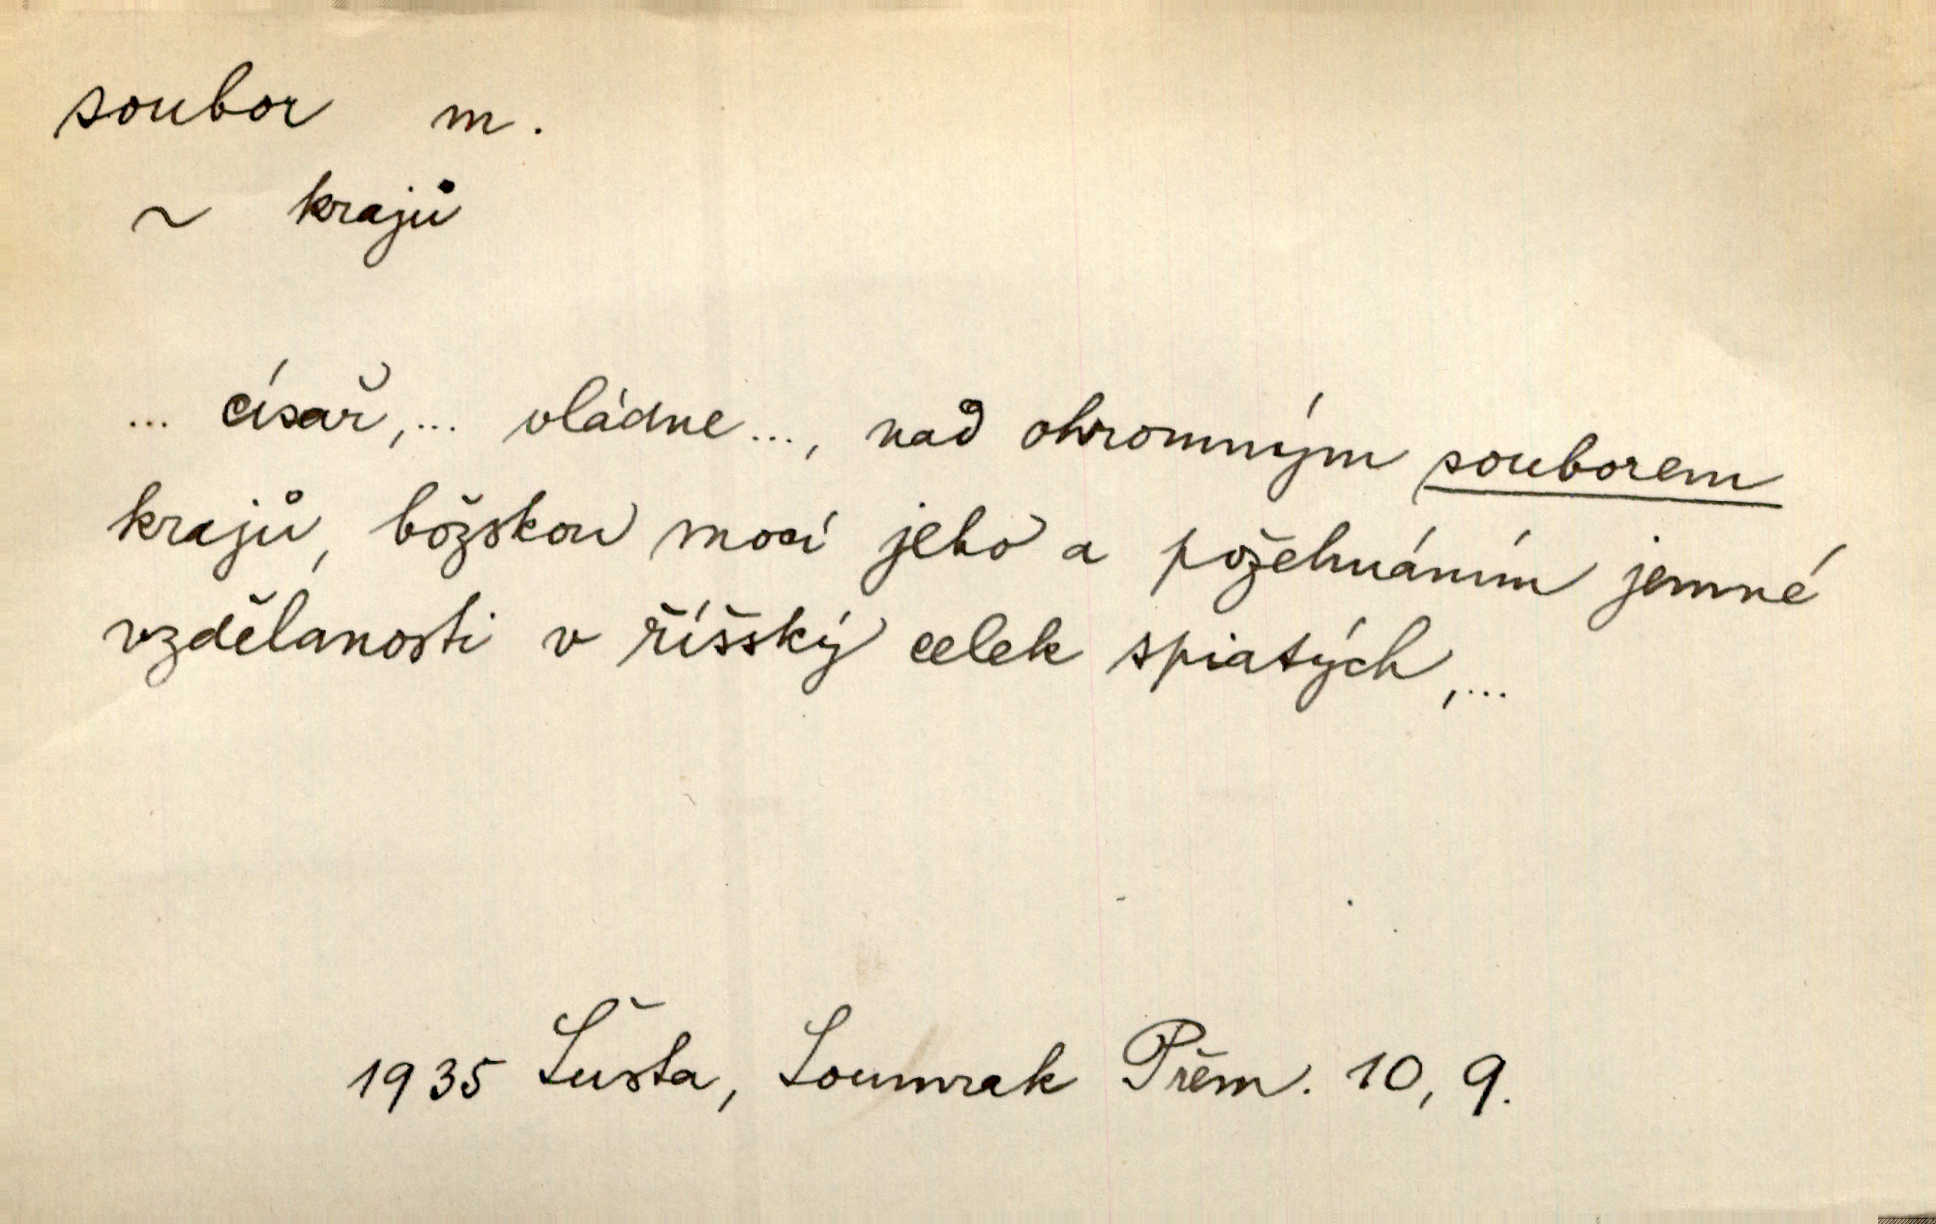 soubor m.
~ krajů
... císař,... vládne..., nad ohromným souborem
krajů, božskou mocí jeho a požehnáním jemné
vzdělanosti v říšský celek spiatých,...
1935 Šusta, Soumrak Přem. 10, 9.